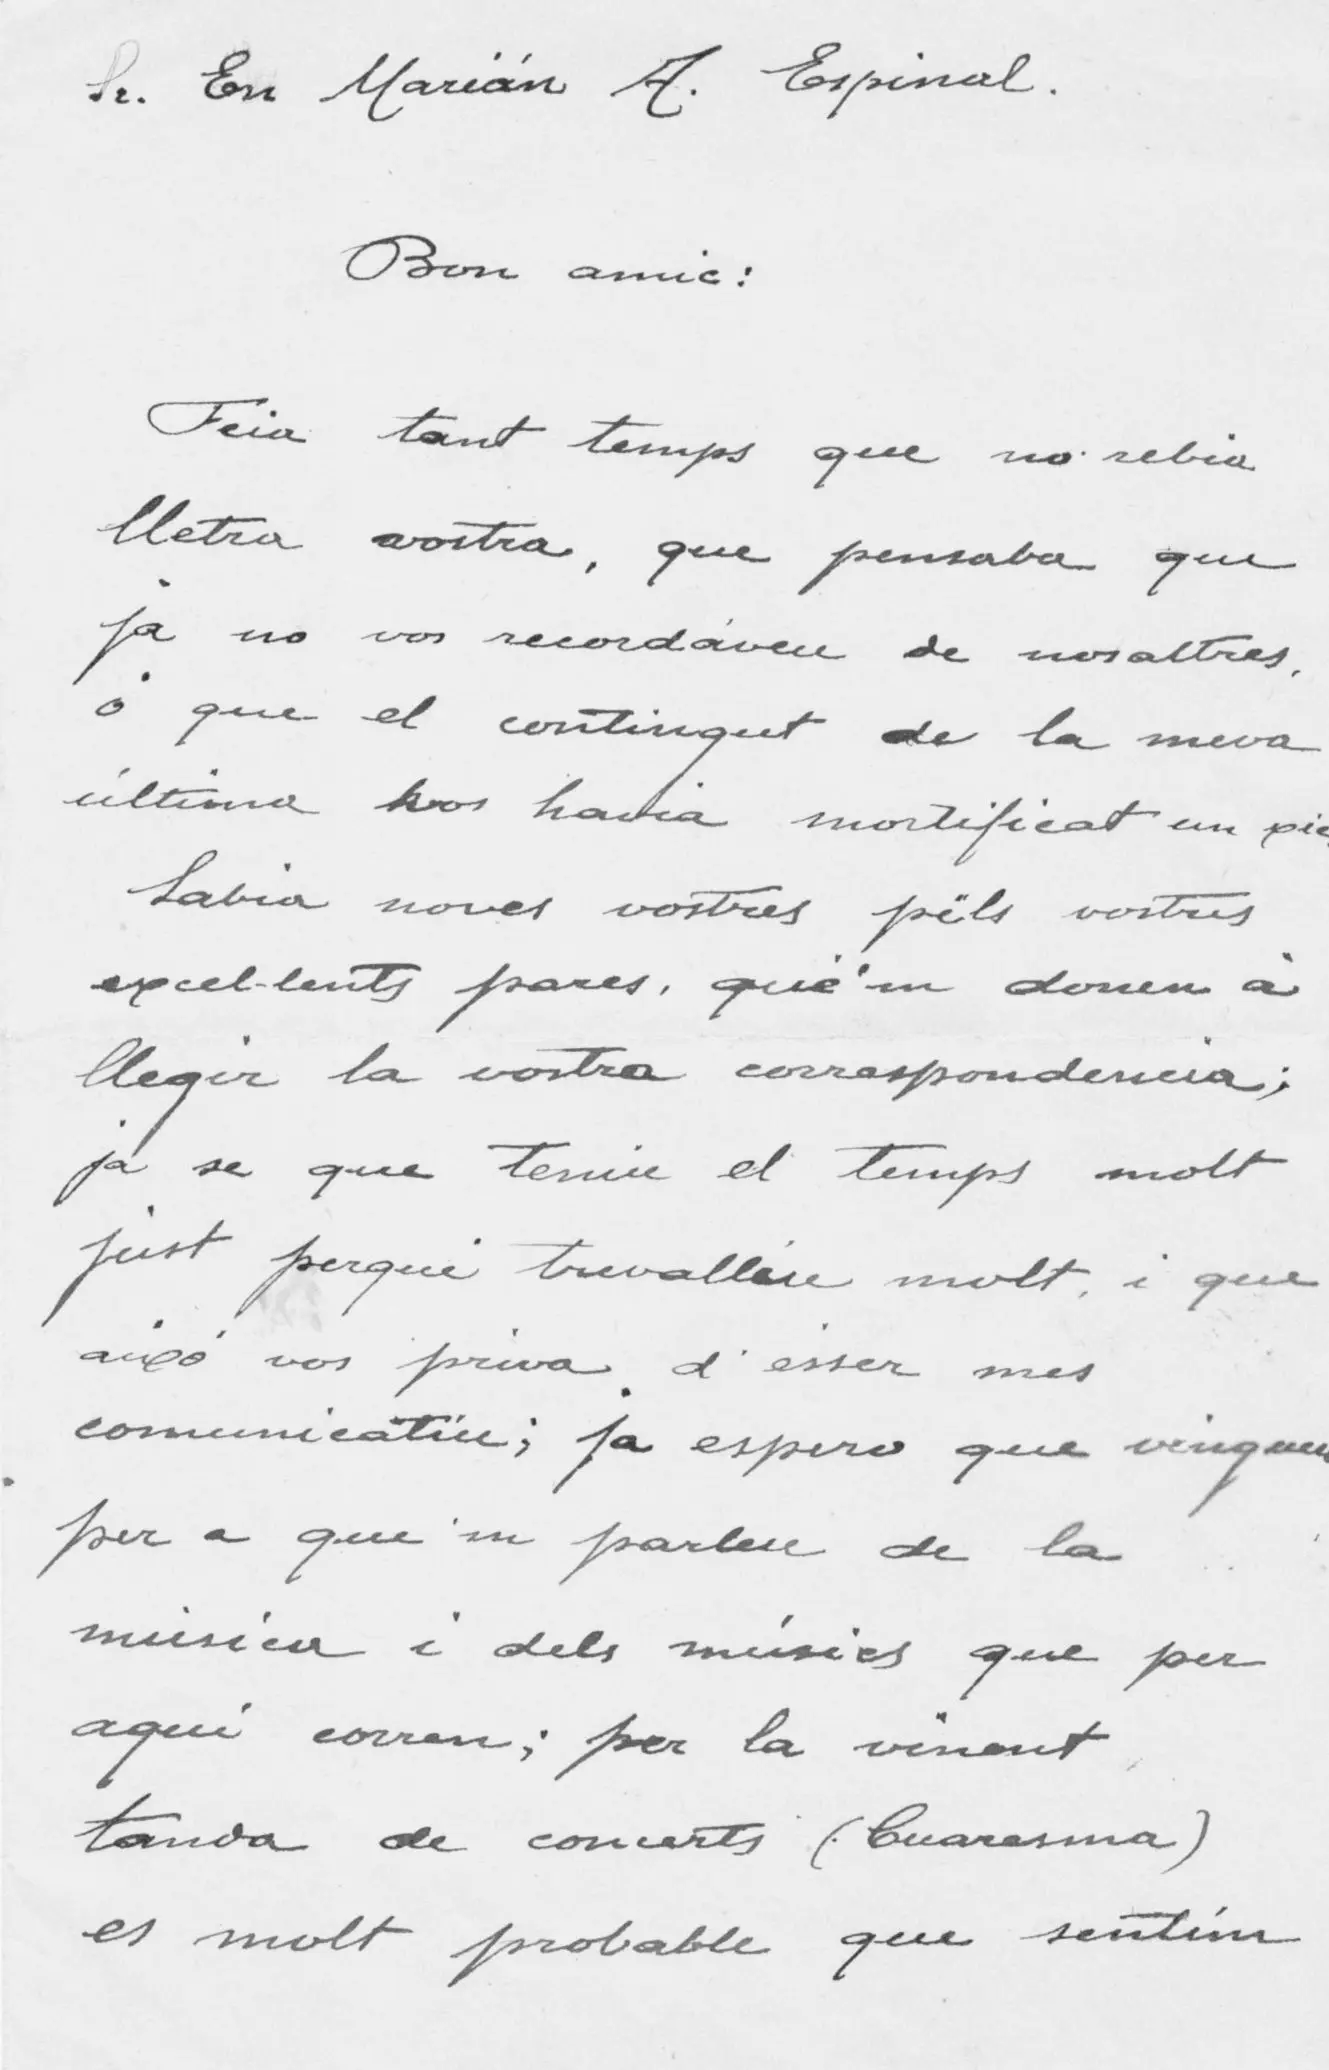 Sr. En Marián A. Espinal.
Bon amic:
Feia tant temps que no rebia
lletra vostra, que pensaba que
ja no vos recordáveu de nosaltres,
ó que el contingut de la meva
última vos havia mortificat un xic.
Sabia noves vostres péls vostres
excel-lents pares, qué'm donen á
llegir la vostra correspondencia;
ja se que teniu el temps molt
just perqué trevalléu molt, i que
aixó vos priva d'ésser mes
comunicatíu; ja espero que vingueu
per a que'm parleu de la
música i dels músics que per
aquí corren; per la vinent
tanda de concerts (Cuaresma)
es molt probable que sentím